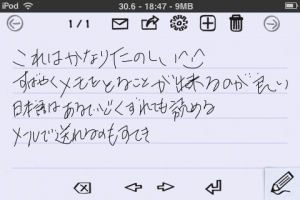 iPod
30.6 - 18:47 - 9MB
1 / 1
これはかなりたのしい
すばやくメモをとることが出来るのが良い
日本語はあるていどくずれても読める
メールで送れるのもすてき